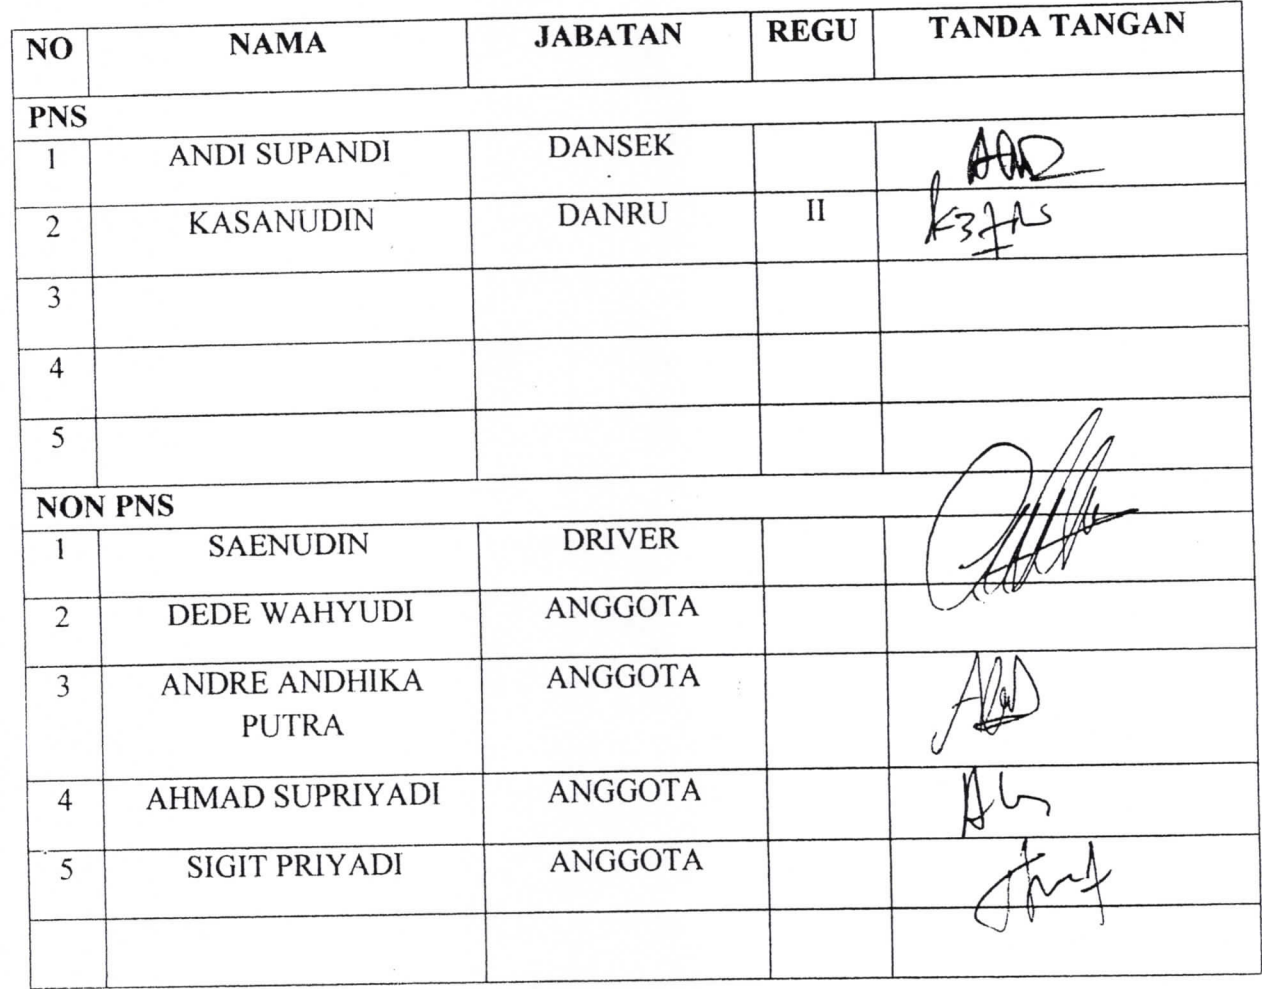 NO NAMA JABATAN REGU TANDA TANGAN
PNS
1 ANDI SUPANDI DANSEK
2 KASANUDIN DANRU II
3
4
5
NON PNS
1 SAENUDIN DRIVER
2 DEDE WAHYUDI ANGGOTA
3 ANDRE ANDHIKA ANGGOTA
PUTRA
4 AHMAD SUPRIYADI ANGGOTA
5 SIGIT PRIYADI ANGGOTA